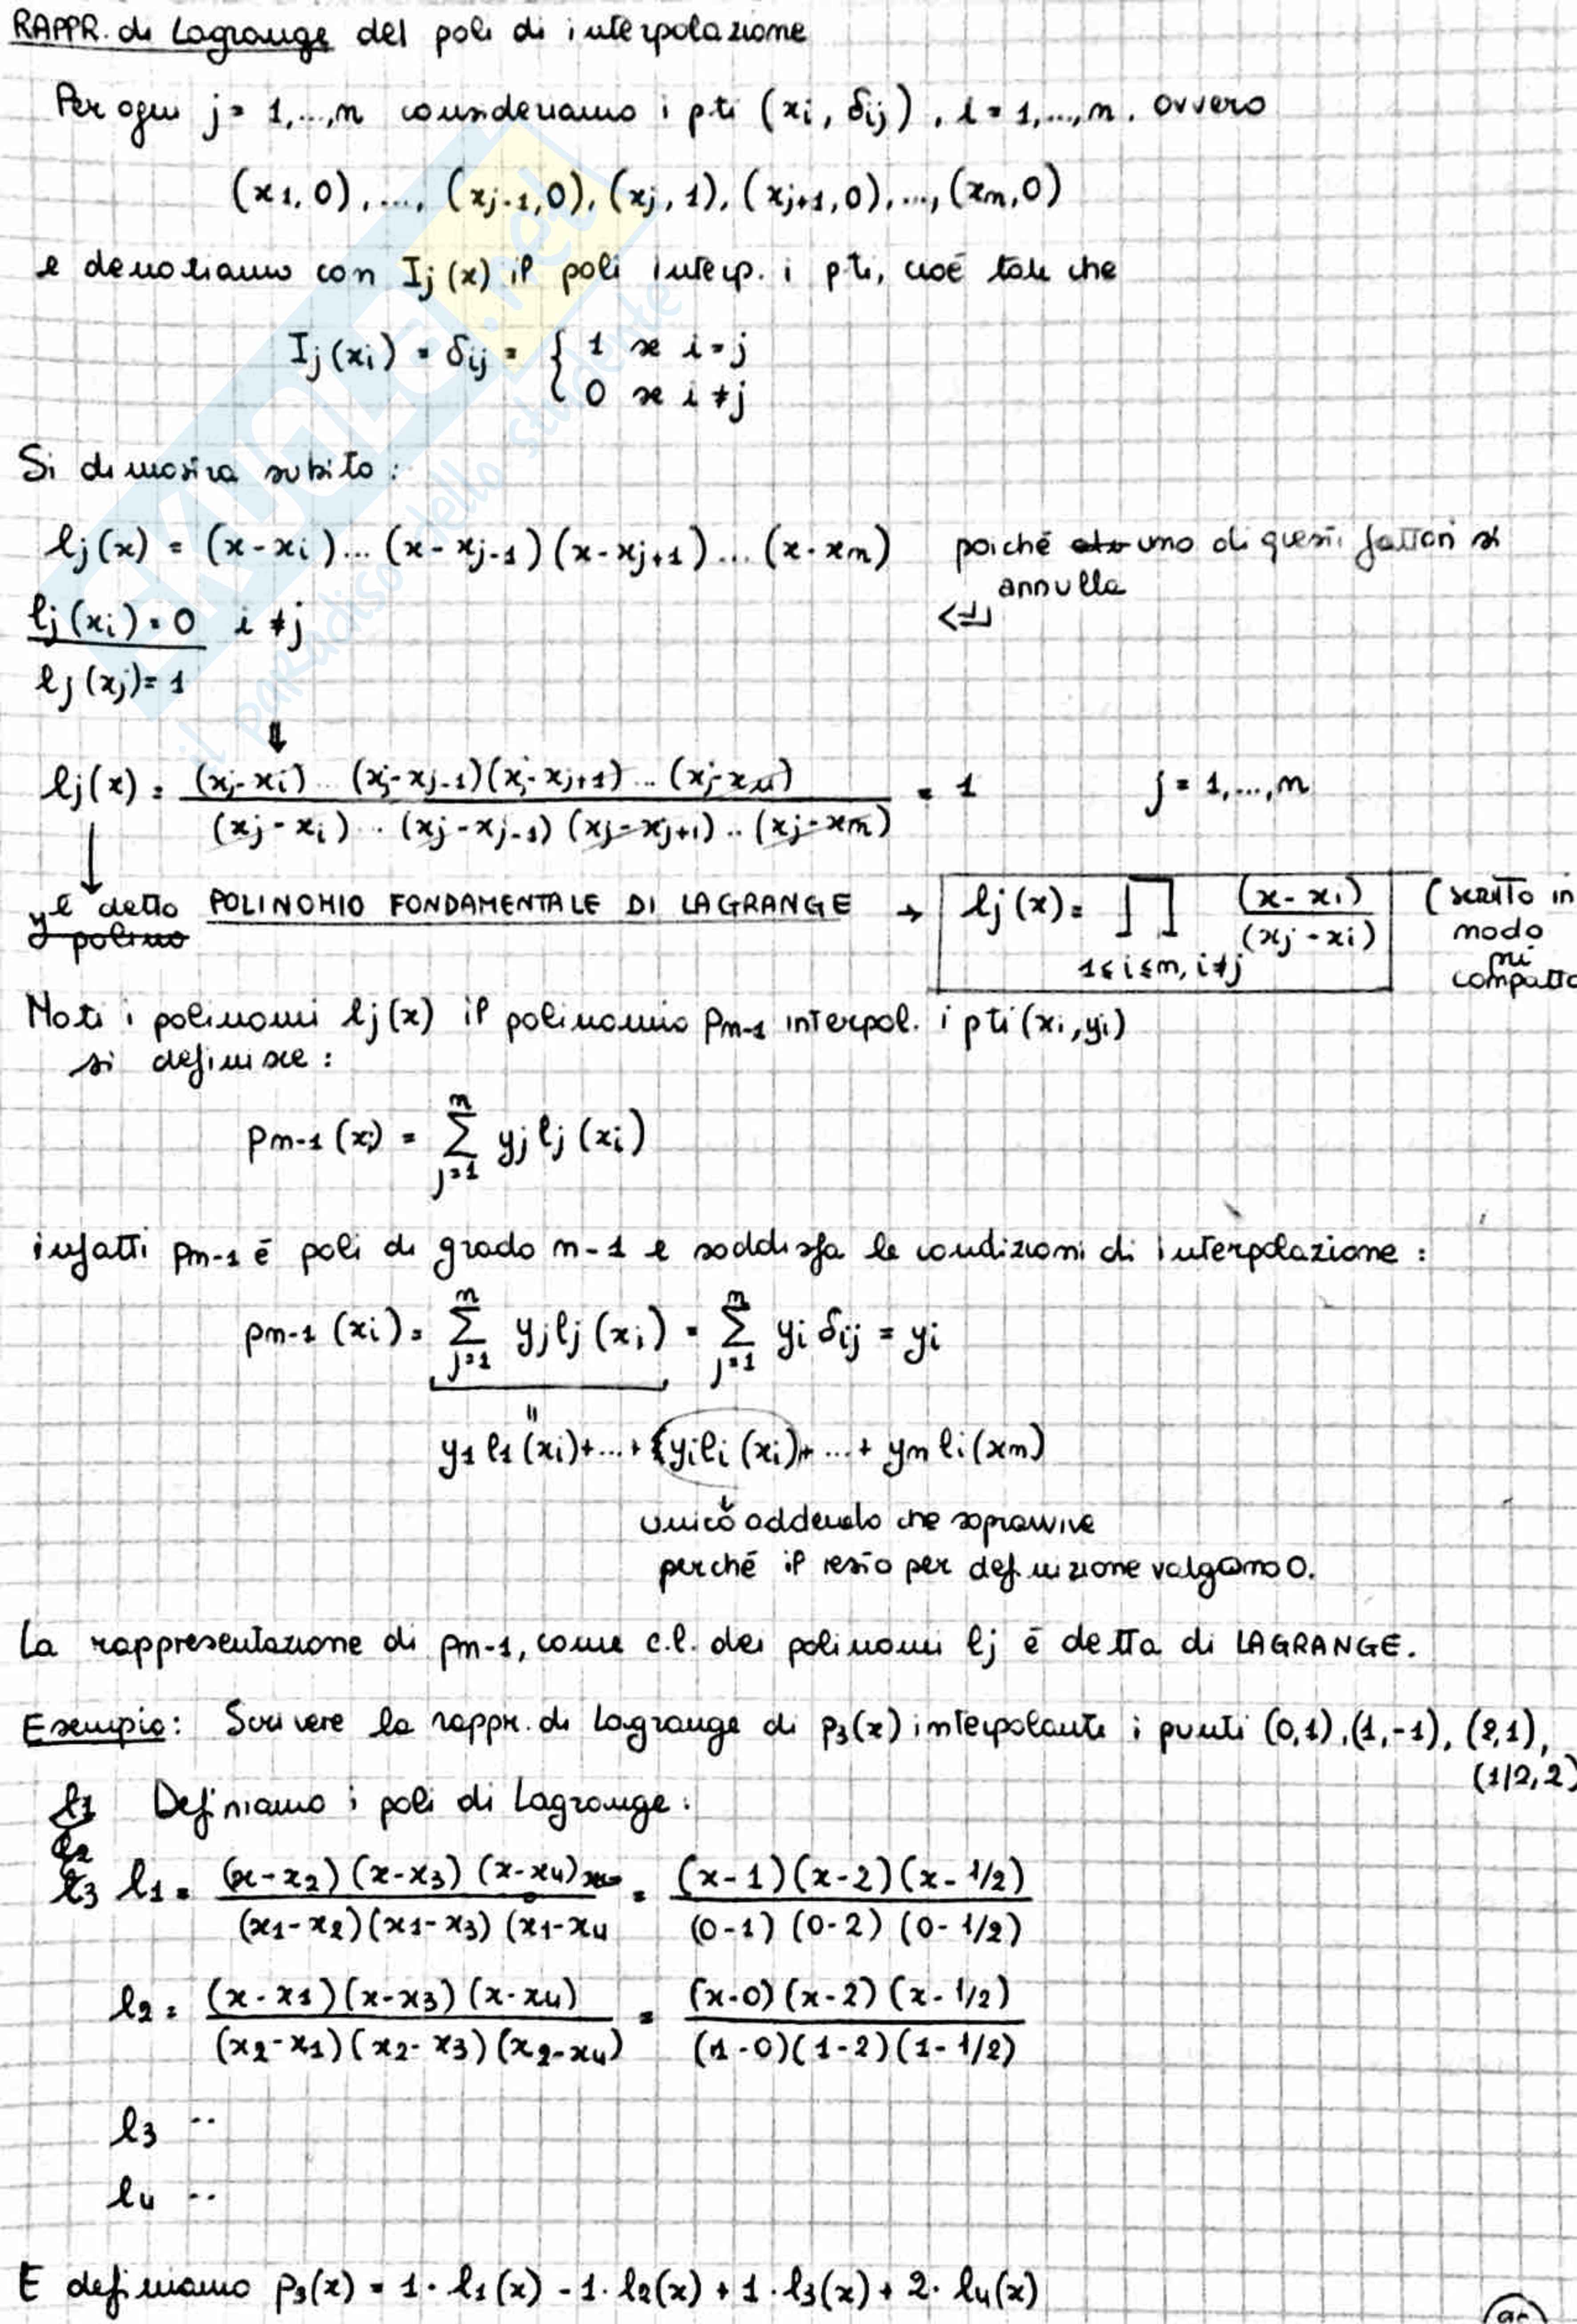 RAPPR. di Lagrange del poli di interpolazione
Per ogni j = 1,...,n consideriamo i pti (xi, δij), i = 1,...,n, ovvero
(x1,0), ..., (xj-1,0), (xj,1), (xj+1,0), ..., (xn,0)
e denotiamo con Ij(x) il poli interp. i pti, cioè tale che
Ij(xi) = δij = { 1 se i=j
0 se i≠j
Si dimostra subito:
lj(x) = (x-xi)...(x-xj-1)(x-xj+1)...(x-xn) poiché uno di questi fattori si
annulla
lj(xi)=0 i≠j
lj(xj)=1
⇓
lj(x) = (xj-xi)...(xj-xj-1)(xj-xj+1)...(xj-xn) / (xj-xi)...(xj-xj-1)(xj-xj+1)..(xj-xn) = 1 j = 1,...,n
è detto POLINOMIO FONDAMENTALE DI LAGRANGE → lj(x) = ∏ (x-xi)/(xj-xi) (scritto in
y polino 1≤i≤n, i≠j modo
più
compatto
Noti i polinomi lj(x) il polinomio pn-1 interpol. i pti (xi,yi)
si definisce:
pn-1(xi) = n Σ j=1 yj lj(xi)
infatti pn-1 è poli di grado n-1 e soddisfa le condizioni di interpolazione:
pn-1(xi) = n Σ j=1 yj lj(xi) = n Σ j=1 yi δij = yi
=
y1 l1(xi)+...+ (yi li(xi)+...+ yn li(xn)
↓
unico addendo che sopravvive
perché il resto per definizione valgono 0.
La rappresentazione di pn-1, come c.l. dei polinomi lj è detta di LAGRANGE.
Esempio: Scrivere la rappr. di Lagrange di p3(x) interpolante i punti (0,1),(1,-1),(2,1),
(1/2,2)
l1 Definiamo i poli di Lagrange:
l2
l3 l1 = (x-x2)(x-x3)(x-x4) / (x1-x2)(x1-x3)(x1-x4 = (x-1)(x-2)(x-1/2) / (0-1)(0-2)(0-1/2)
l2 = (x-x1)(x-x3)(x-x4) / (x2-x1)(x2-x3)(x2-x4) = (x-0)(x-2)(x-1/2) / (1-0)(1-2)(1-1/2)
l3 ..
l4 ..
E definiamo p3(x) = 1·l1(x) - 1·l2(x) + 1·l3(x) + 2·l4(x)
SKUOLA.net
il paradiso dello studente